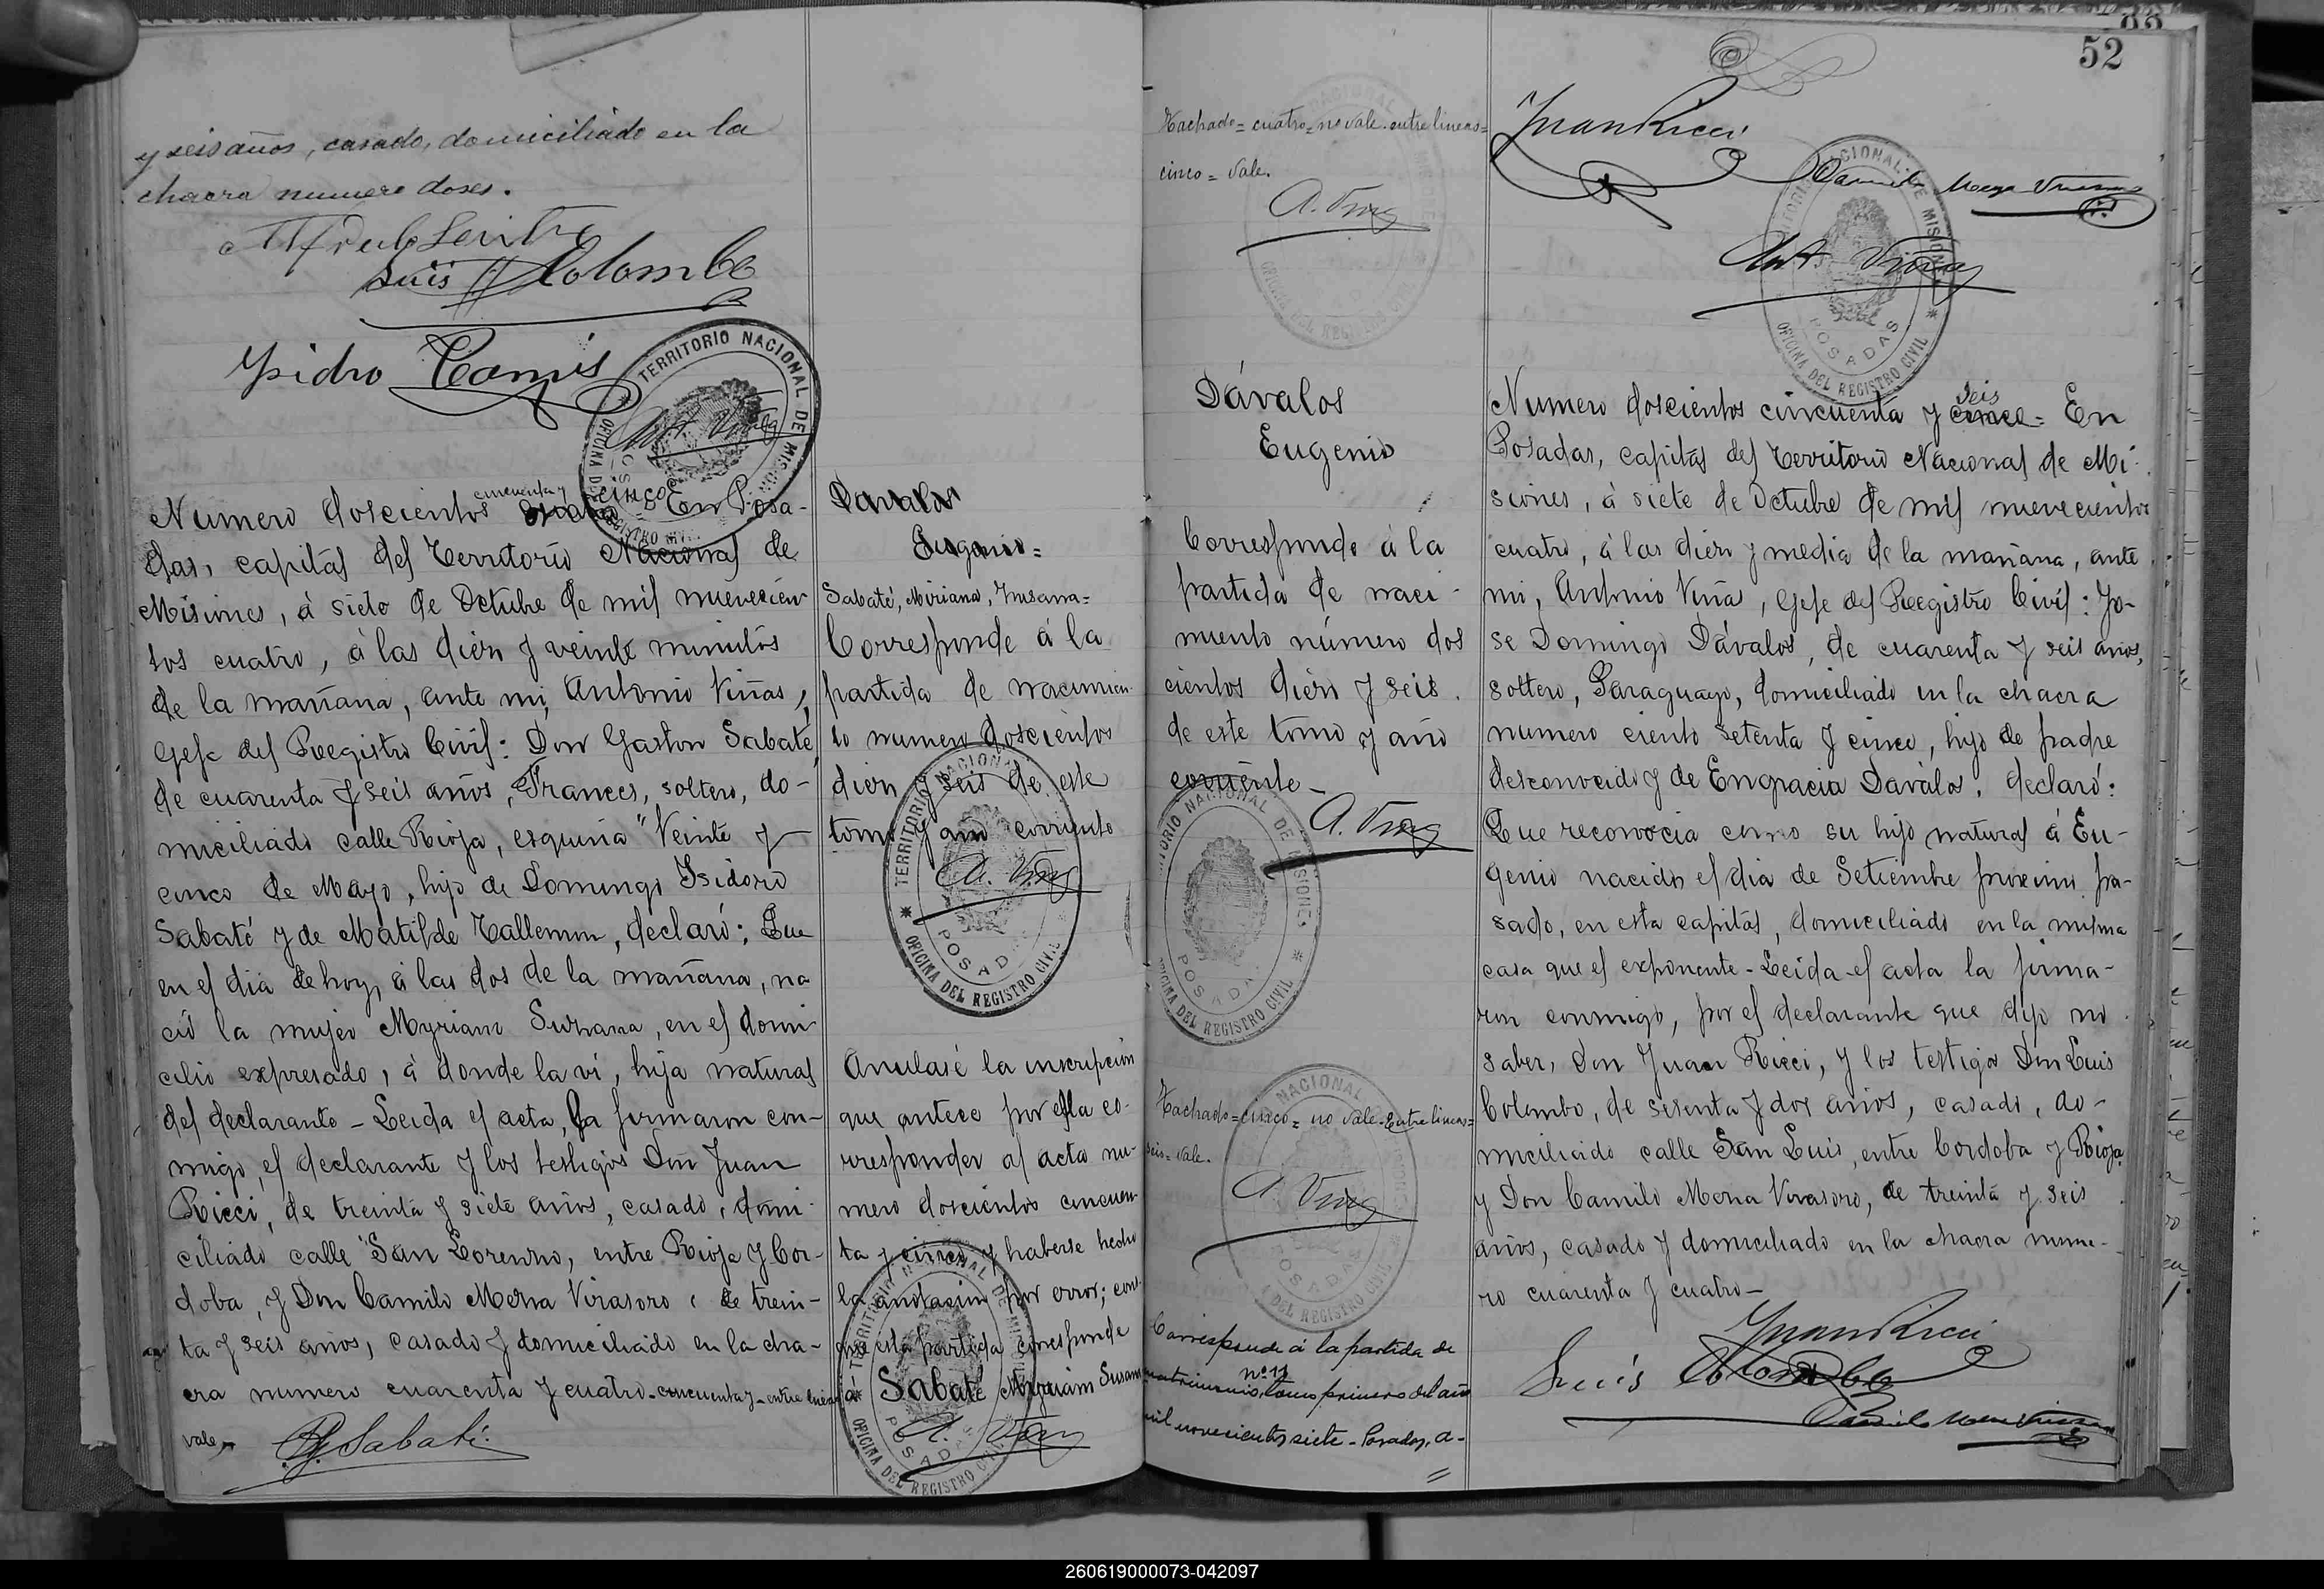 y seis años, casado, domiciliado en la
chacra numero doses.
Luis Colombo
Ysidro Comis
TERRITORIO NACIONAL DE MISIONES
OFICINA DEL REGISTRO CIVIL
Numero doscientos cincuenta y cinco En Posa-
das, capital del Territorio Nacional de
Misiones, á siete de Octubre de mil novecien-
tos cuatro, á las diez y veinte minutos
de la mañana, ante mi, Antonio Viñas,
Gefe del Registro Civil: Don Gaston Sabaté,
de cuarenta y seis años, Frances, soltero, do-
miciliado calle Rioja, esquina "Veinte y
cinco de Mayo, hijo de Domingo Isidoro
Sabaté y de Matilde Tallemon, declaró; Que
en el dia de hoy, á las dos de la mañana, na
ció la mujer Myriam Suzana, en el domi
cilio expresado, á donde la ví, hija natural
del declarante - Leida el acta, la firmaron con-
migo, el declarante y los testigos Don Juan
Ricci, de treinta y siete años, casado, domi-
ciliado calle "San Lorenzo, entre Rioja y Cor-
doba, y Don Camilo Mena Virasoro, de trein-
ta y seis años, casado y domiciliado en la cha-
cra numero cuarenta y cuatro - cincuenta y - entre lineas
vale
G. Sabaté
Davalos
Eugenio =
Sabaté, Miriana, Susana =
Corresponde á la
partida de nacimien-
to numero doscientos
diez y seis de este
tomo y año corriente
A. Viñas
TERRITORIO NACIONAL
POSADAS
OFICINA DEL REGISTRO CIVIL
Anulase la inscripción
que antece por ella co-
rresponder al acta nu-
mero doscientos cincuen
ta y cinco y haberse hecho
la anotacion por error; con-
que esta partida corresponde
á Sabaté Myriam Susana
A. Viñas
POSADAS
OFICINA DEL REGISTRO CIVIL
52
Tachado = cuatro = no vale - entre lineas =
cinco = Vale.
A. Viñas
Juan Ricci
Camilo Mena Virasoro
Ant. Viñas
POSADAS
OFICINA DEL REGISTRO CIVIL
Dávalos
Eugenio
Corresponde á la
partida de naci-
miento número dos
cientos diez y seis
de este tomo y año
corriente -
A. Viñas
TERRITORIO NACIONAL DE MISIONES
POSADAS
OFICINA DEL REGISTRO CIVIL
Tachado = cinco = no vale - Entre lineas =
seis = vale.
A. Viñas
Corresponde á la partida de
matrimonio, nº 11 tomo primero del año
mil novecientos siete - Posadas, a-
Numero doscientos cincuenta y cinco seis = En
Posadas, capital del Territorio Nacional de Mi-
siones, á siete de Octubre de mil novecientos
cuatro, á las diez y media de la mañana, ante
mi, Antonio Viñas, Gefe del Registro Civil: Jo-
se Domingo Dávalos, de cuarenta y seis años,
soltero, Paraguayo, domiciliado en la chacra
numero ciento setenta y cinco, hijo de padre
desconocido y de Engracia Daválos, declaró:
Que reconocia como su hijo natural á Eu-
genio nacido el dia de Setiembre proximo pa-
sado, en esta capital, domiciliado en la misma
casa que el exponente - Leida el acta la firma-
ron conmigo, por el declarante que dijo no
saber, Don Juan Ricci, y los testigos Don Luis
Colombo, de sesenta y dos años, casado, do-
miciliado calle San Luis, entre Cordoba y Rioja
y Don Camilo Mena Virasoro, de treinta y seis
años, casado y domiciliado en la chacra nume-
ro cuarenta y cuatro -
Juan Ricci
Luis Colombo
Camilo Mena Virasoro
260619000073-042097